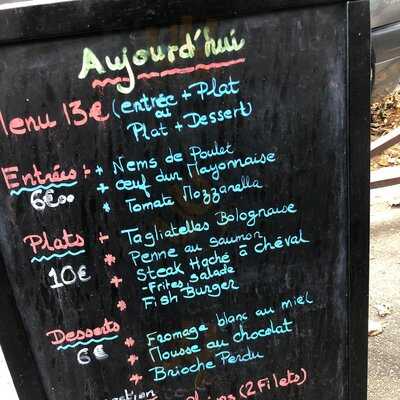 Aujourd'hui
Menu 13€ (entrée + Plat
ou
Plat + Dessert)
Entrées :
6€00
+ Nems de Poulet
+ œuf dur Mayonnaise
* Tomate Mozzarella
Plats
10€
+ Tagliatelles Bolognaise
* Penne au saumon
* Steak Haché à cheval
- Frites Salade
* Fish Burger
Desserts
6€
* Fromage blanc au miel
* Mousse au chocolat
* Brioche Perdu
(2 Filets)